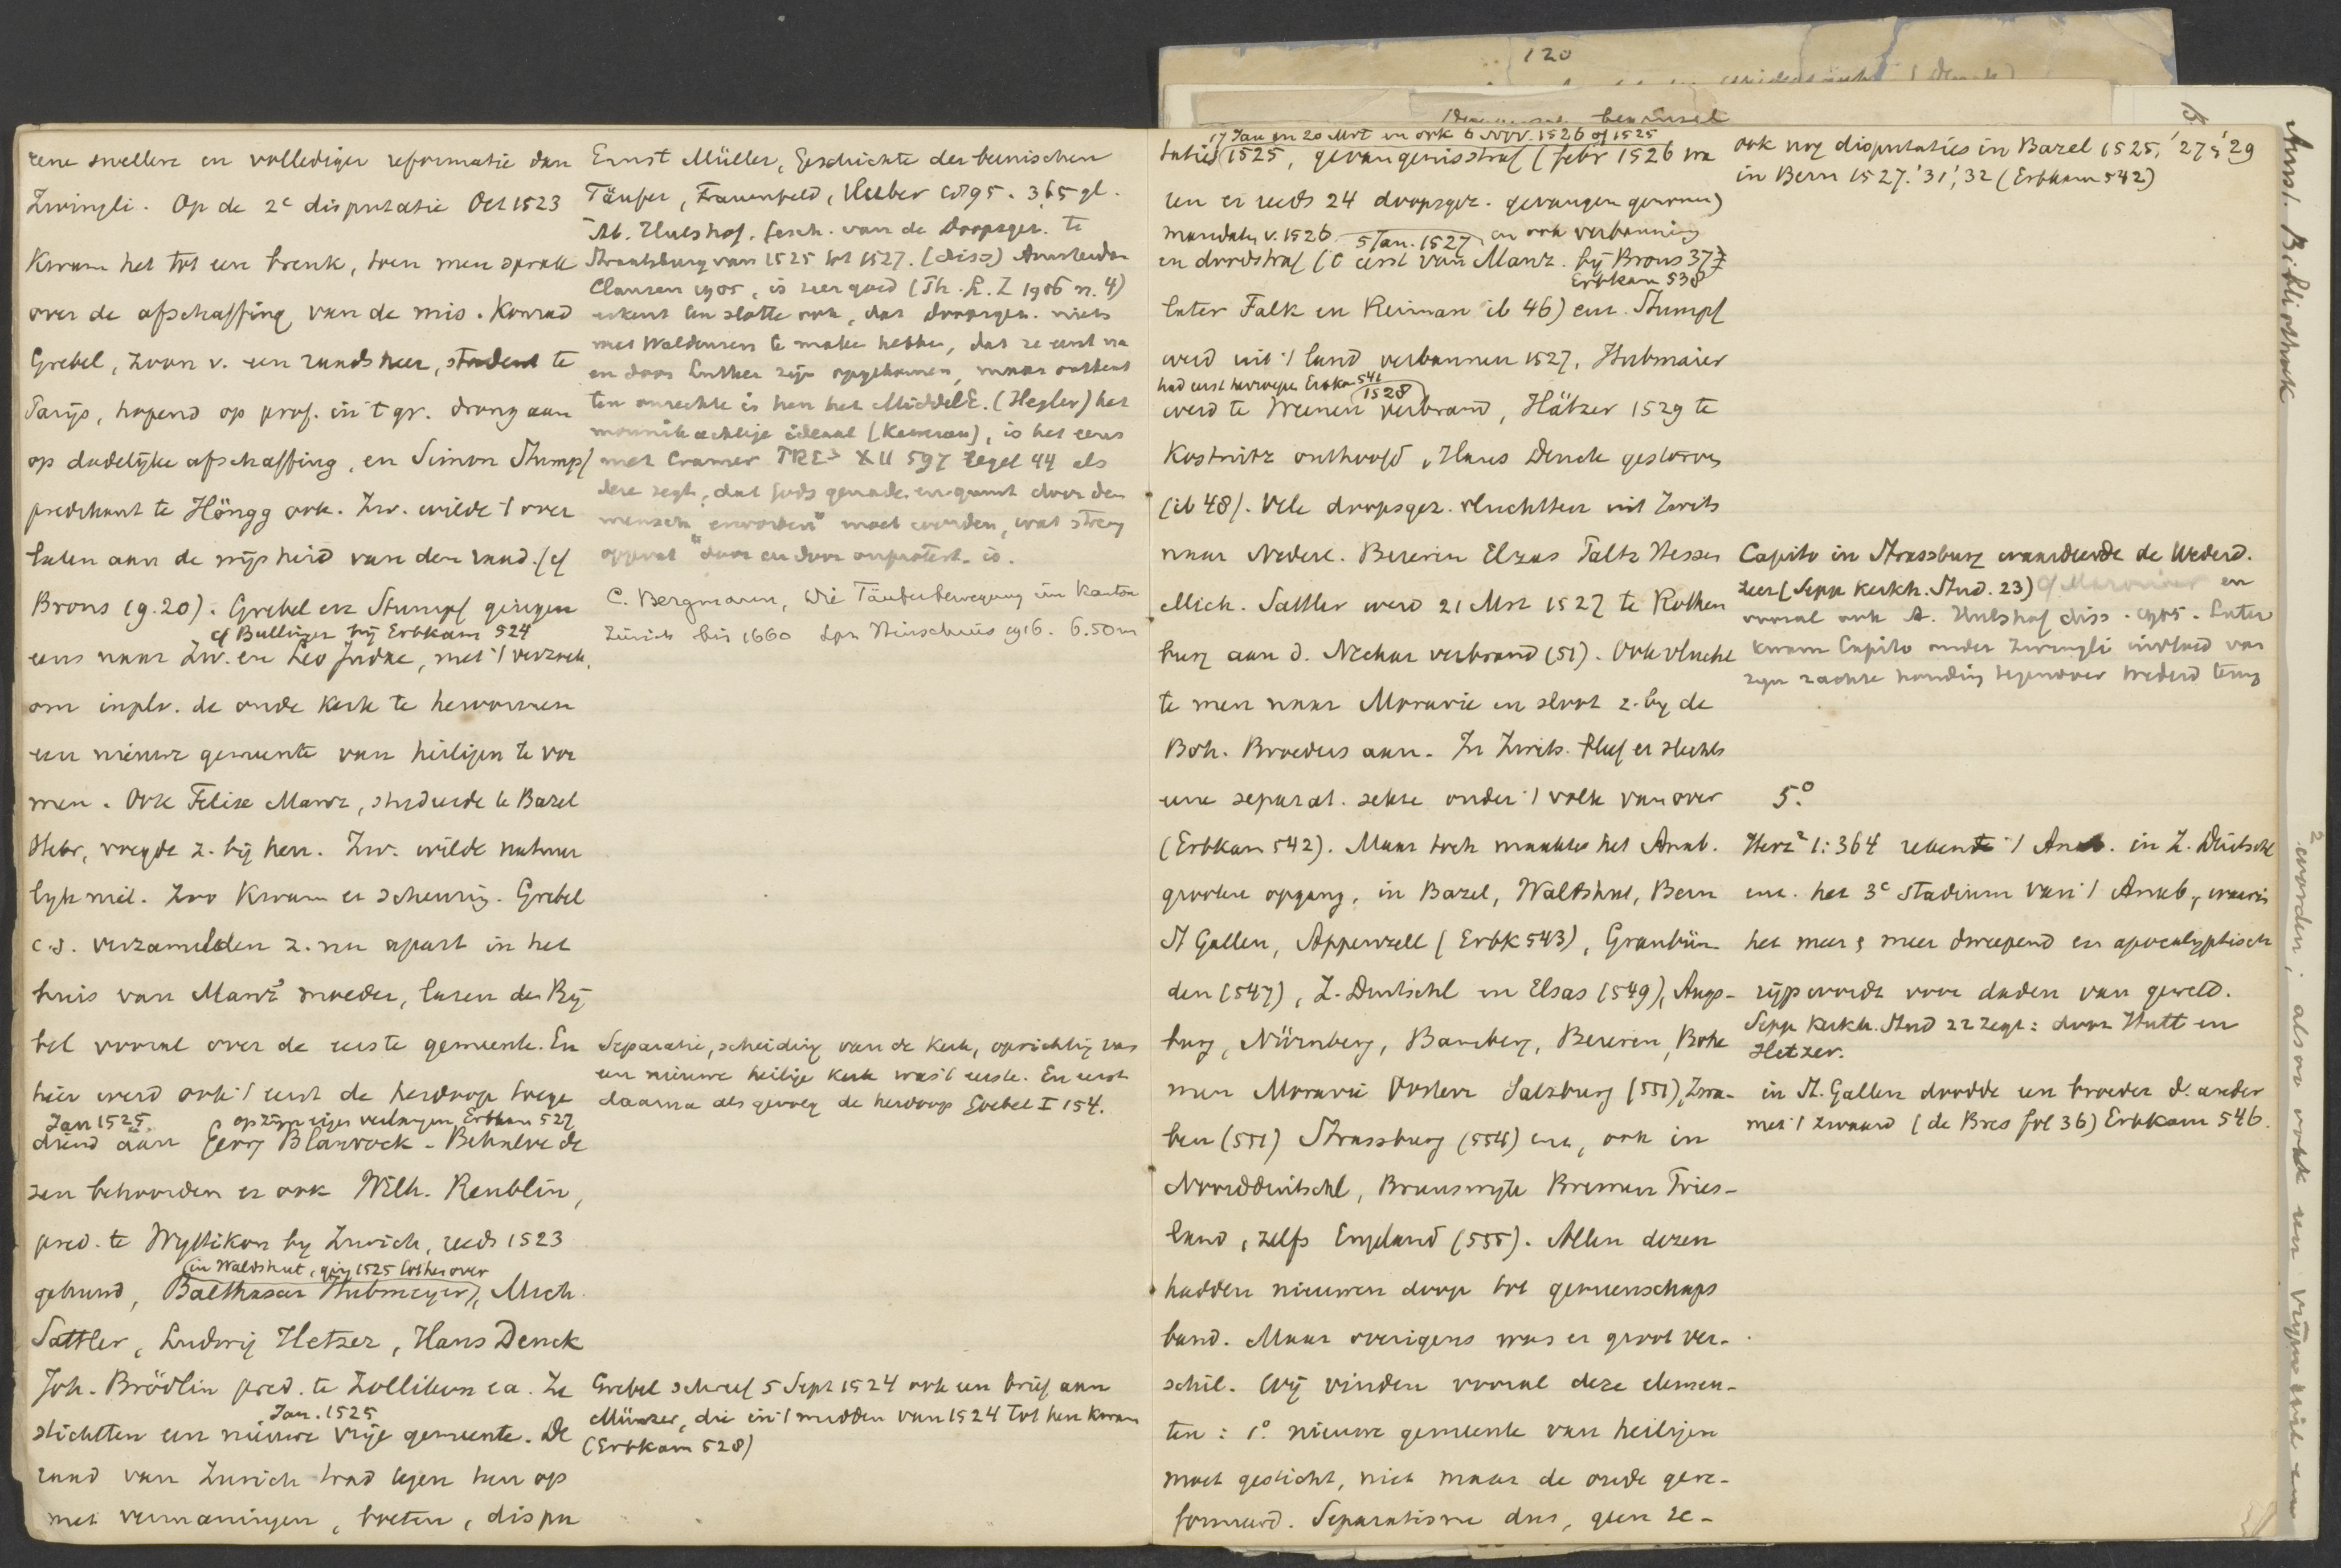 eene snellere en vollediger reformatie dan
Zwingli. Op de 2e disputatie Oct 1523
kwam het tot een breuk, toen men sprak
over de afschaffing van de mis. Konrad
Grebel, zoon v. een raadsheer, student te
Parijs, hopend op prof. in 't gr. drong aan
op dadelijke afschaffing, en Simon Stumpf
predikant te Höngg ook. Zw. wilde 't over
laten aan de wijsheid van den raad. (cf
Brons (g.20). Grebel en Stumpf gingen
cf Bullinger bij Erbkam 524
eens naar Zw. en Leo Judae, met 't verzoek,
om in pl. v. de oude kerk te hervormen
een nieuwe gemeente van heiligen te vor
men. Ook Felix Manz, studeerde te Bazel
Hebr, voegde z. bij hen. Zw. wilde natuur
lijk niet. Zoo kwam er scheuring. Grebel
c.s. verzamelden z. nu apart in het
huis van Manz' moeder, lazen den Bij
bel vooral over de eerste gemeente. En
hier werd ook 't eerst de herdoop toege
Jan 1525. op zijn eigen verlangen Erbkam 527
diend aan Georg Blaurock. Behalve de
zen behoorden er ook Wilh. Reublin,
pred. te Wyttikon bij Zurich, reeds 1523
(in Waldshut, ging 1525 tot hen over
gehuwd, Balthasar Hubmeyer), Mich.
Sattler, Ludwig Hetzer, Hans Denck
Joh. Brödlin pred. te Zollikon e.a. Ze
Jan. 1525
stichtten een nieuwe vrije gemeente. De
raad van Zurich trad tegen hen op
met vermaningen, boeten, dispu
Ernst Müller, Geschichte der bernischen
Täufer, Frauenfeld, Hueber 1895. 3,65 gl.
Ab. Hulshof, Gesch. van de Doopsgez. te
Straatsburg van 1525 tot 1527. (diss) Amsterdam
Clausen 1905, is zeer goed (Th. L. Z 1906 n. 4)
erkent ten slotte ook, dat doopsgez. niets
met Waldenzen te maken hebben, dat ze eerst na
en door Luther zijn opgekomen, maar ontkent
ten onrechte in hen het MiddelE. (Hegler) het
monnikachtige ideaal (Kawerau), is het eens
met Cramer PRE3 XII 597 regel 44 als
deze zegt, dat Gods genade door den
mensch "erworben" moet worden, wat
"door en door onprotest." is.
C. Bergmann, Die Täuferbewegung im Kanton
Zürich bis 1660 Lpz Heinsius 1916. 6.50 m
Separatie, scheiding van de kerk, oprichting van
een nieuwe heilige kerk was 't eerste. En eerst
daarna als gevolg de herdoop Goebel I 154.
Grebel schreef 5 Sept 1524 ook een brief aan
Münzer, die in 't midden van 1524 tot hen kwam
(Erbkam 528)
120
17 Jan en 20 Mrt en ook 6 Nov. 1526 of 1525
taties 1525, gevangenisstraf (febr 1526 wa
ren er reeds 24 doopsgez. gevangen genomen)
mandaten v. 1526 5 Jan. 1527 en ook verbanning
en doodstraf (t eerst van Manz. bij Brons 37
Erbkam 538
later Falk en Reiman ib 46) enz. Stumpf
werd uit 't land verbannen 1527, Hubmaier
had eerst herroepen Erbkam 541
1528
werd te Weenen verbrand, Hätzer 1529 te
Kostnitz onthoofd, Hans Denck gestorven
(ib 48). Vele doopsgez. vluchtten uit Zwits
naar Nederl. Beieren Elzas Paltz Hessen
Mich. Sattler werd 21 Mei 1527 te Rothen
burg aan d. Neckar verbrand (51). Ook vlucht
te men naar Moravie en sloot z. bij de
Boh. Broeders aan. In Zwits. bleef er slechts
eene separat. sekte onder 't volk van over
(Erbkam 542). Maar toch maakte het Anab.
grooten opgang, in Bazel, Waldshut, Bern
St Gallen, Appenzell (Erbk 543), Graubün
den (547), Z. Duitschl en Elsas (549), Augs-
burg, Nürnberg, Bamberg, Beieren, Bohe
men Moravië Oostenr Salzburg (551), Zwa-
ben (551) Strassburg (554) enz, ook in
Noordduitschl, Brunswijk Bremen Fries-
land, zelfs Engeland (555). Allen dezen
hadden nieuwen doop tot gemeenschaps
band. Maar overigens was er groot ver-
schil. Wij vinden vooral deze elemen-
ten: 1o. nieuwe gemeente van heiligen
moet gesticht, niet maar de oude gere-
formeerd. Separatisme dus, geen re-
ook nog disputaties in Bazel 1525, '27 & '29
in Bern 1527. '31, '32 (Erbkam 542)
Capito in Strassburg waardeerde de Wederd.
zeer (Sepp Kerkh. Stud. 23) en
vooral ook A. Hulshof diss. 1905. Later
kwam Capito onder Zwingli invloed van
zijn zachte houding tegenover wederd terug
5.o
Herz2 1:364 rekent 't Anab. in Z. Duitschl
enz. het 3e stadium van 't Anab., waarin
het meer & meer dweepend en apocalyptisch
rijp wordt voor daden van geweld.
Sepp Kerkh. Stud 22 zegt: door Hutt en
Hetzer.
in St. Gallen doodde een broeder d. ander
met 't zwaard (de Bres fol 36) Erbkam 546.
Amst. Bibliotheek
worden; alsoo ook een vrije wil en